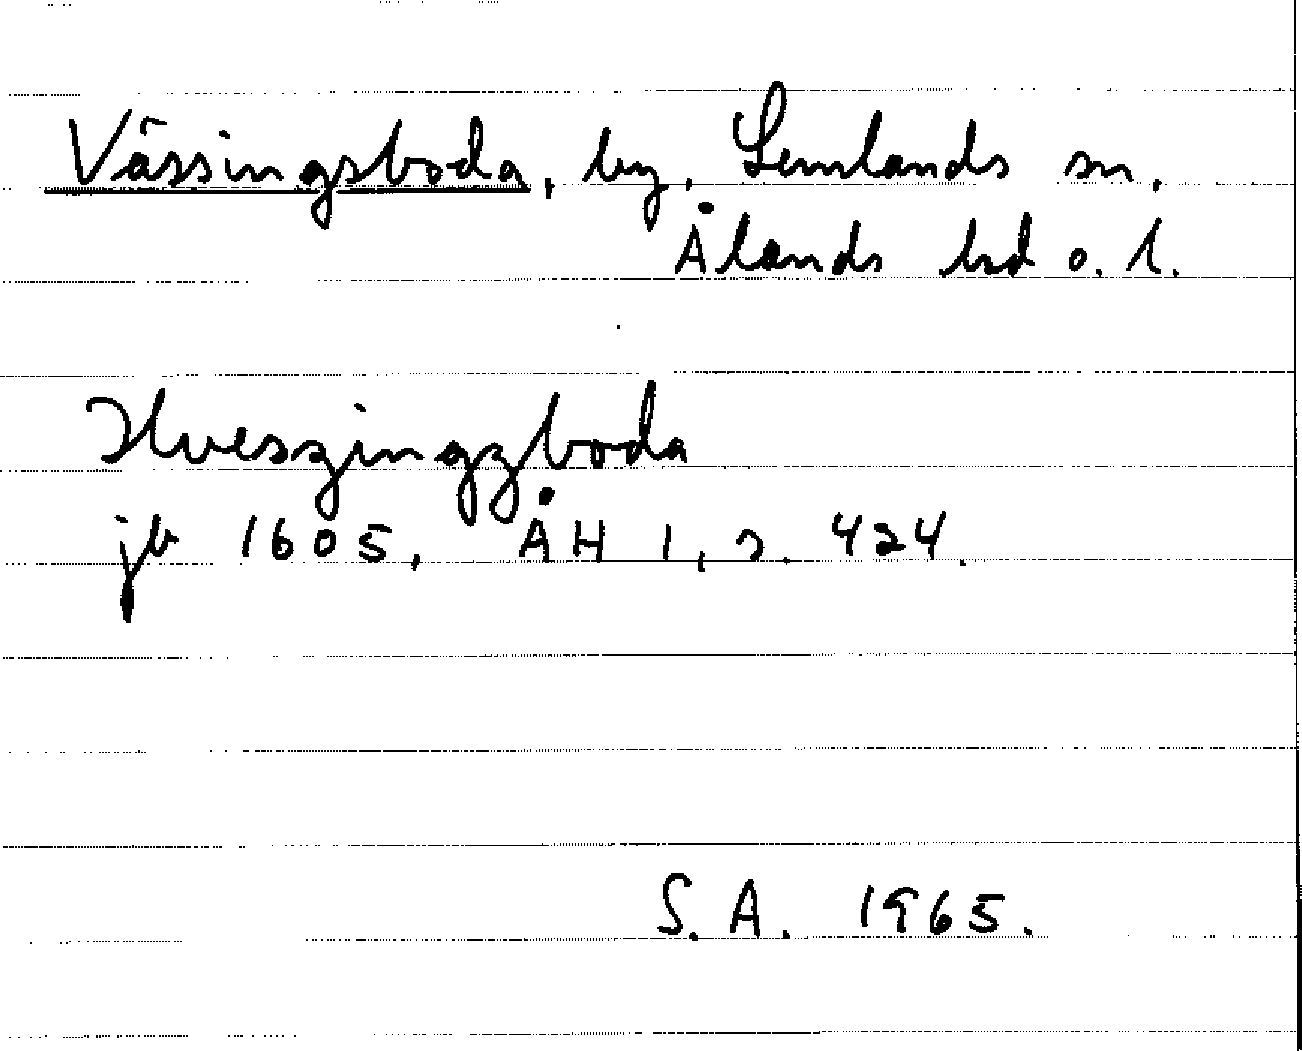 Vässingsboda, by, Lemlands sn,
Ålands hd o. l.
Hveszingzboda
jb 1605, ÅH 1, s. 424.
S.A. 1965.